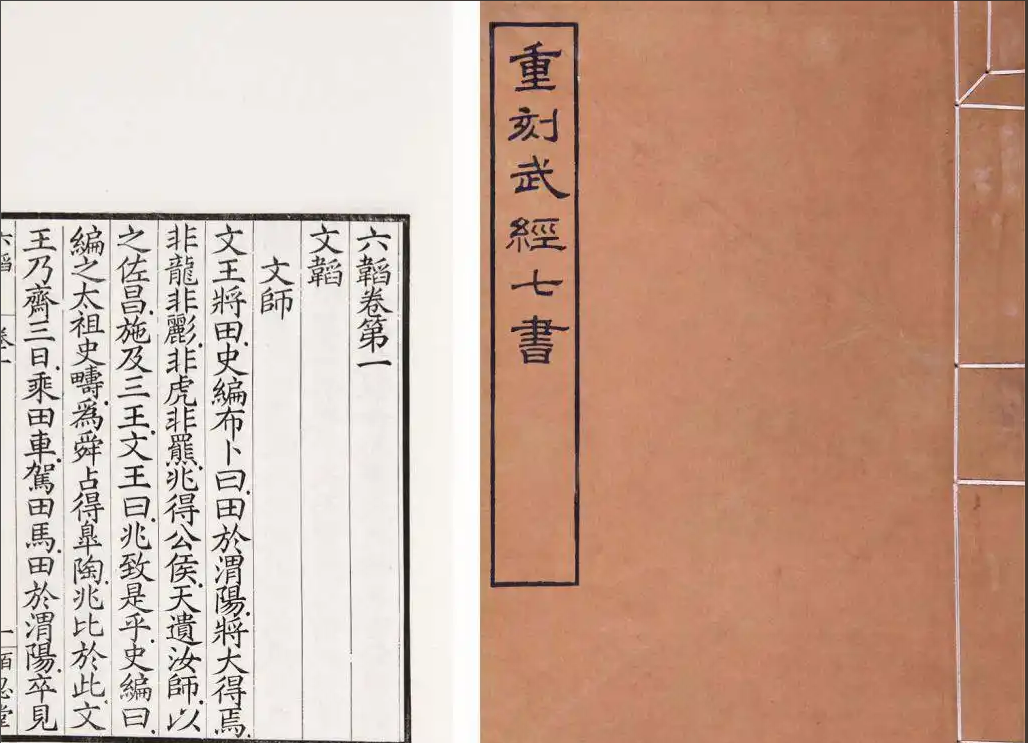 重刻武經七書
六韜卷第一
文韜
文師
文王將田史編布卜曰田於渭陽將大得焉
非龍非彲非虎非羆兆得公侯天遺汝師以
之佐昌施及三王文王曰兆致是乎史編曰
編之太祖史疇爲舜占得皐陶兆比於此文
王乃齋三日乘田車駕田馬田於渭陽卒見
六韜 卷一